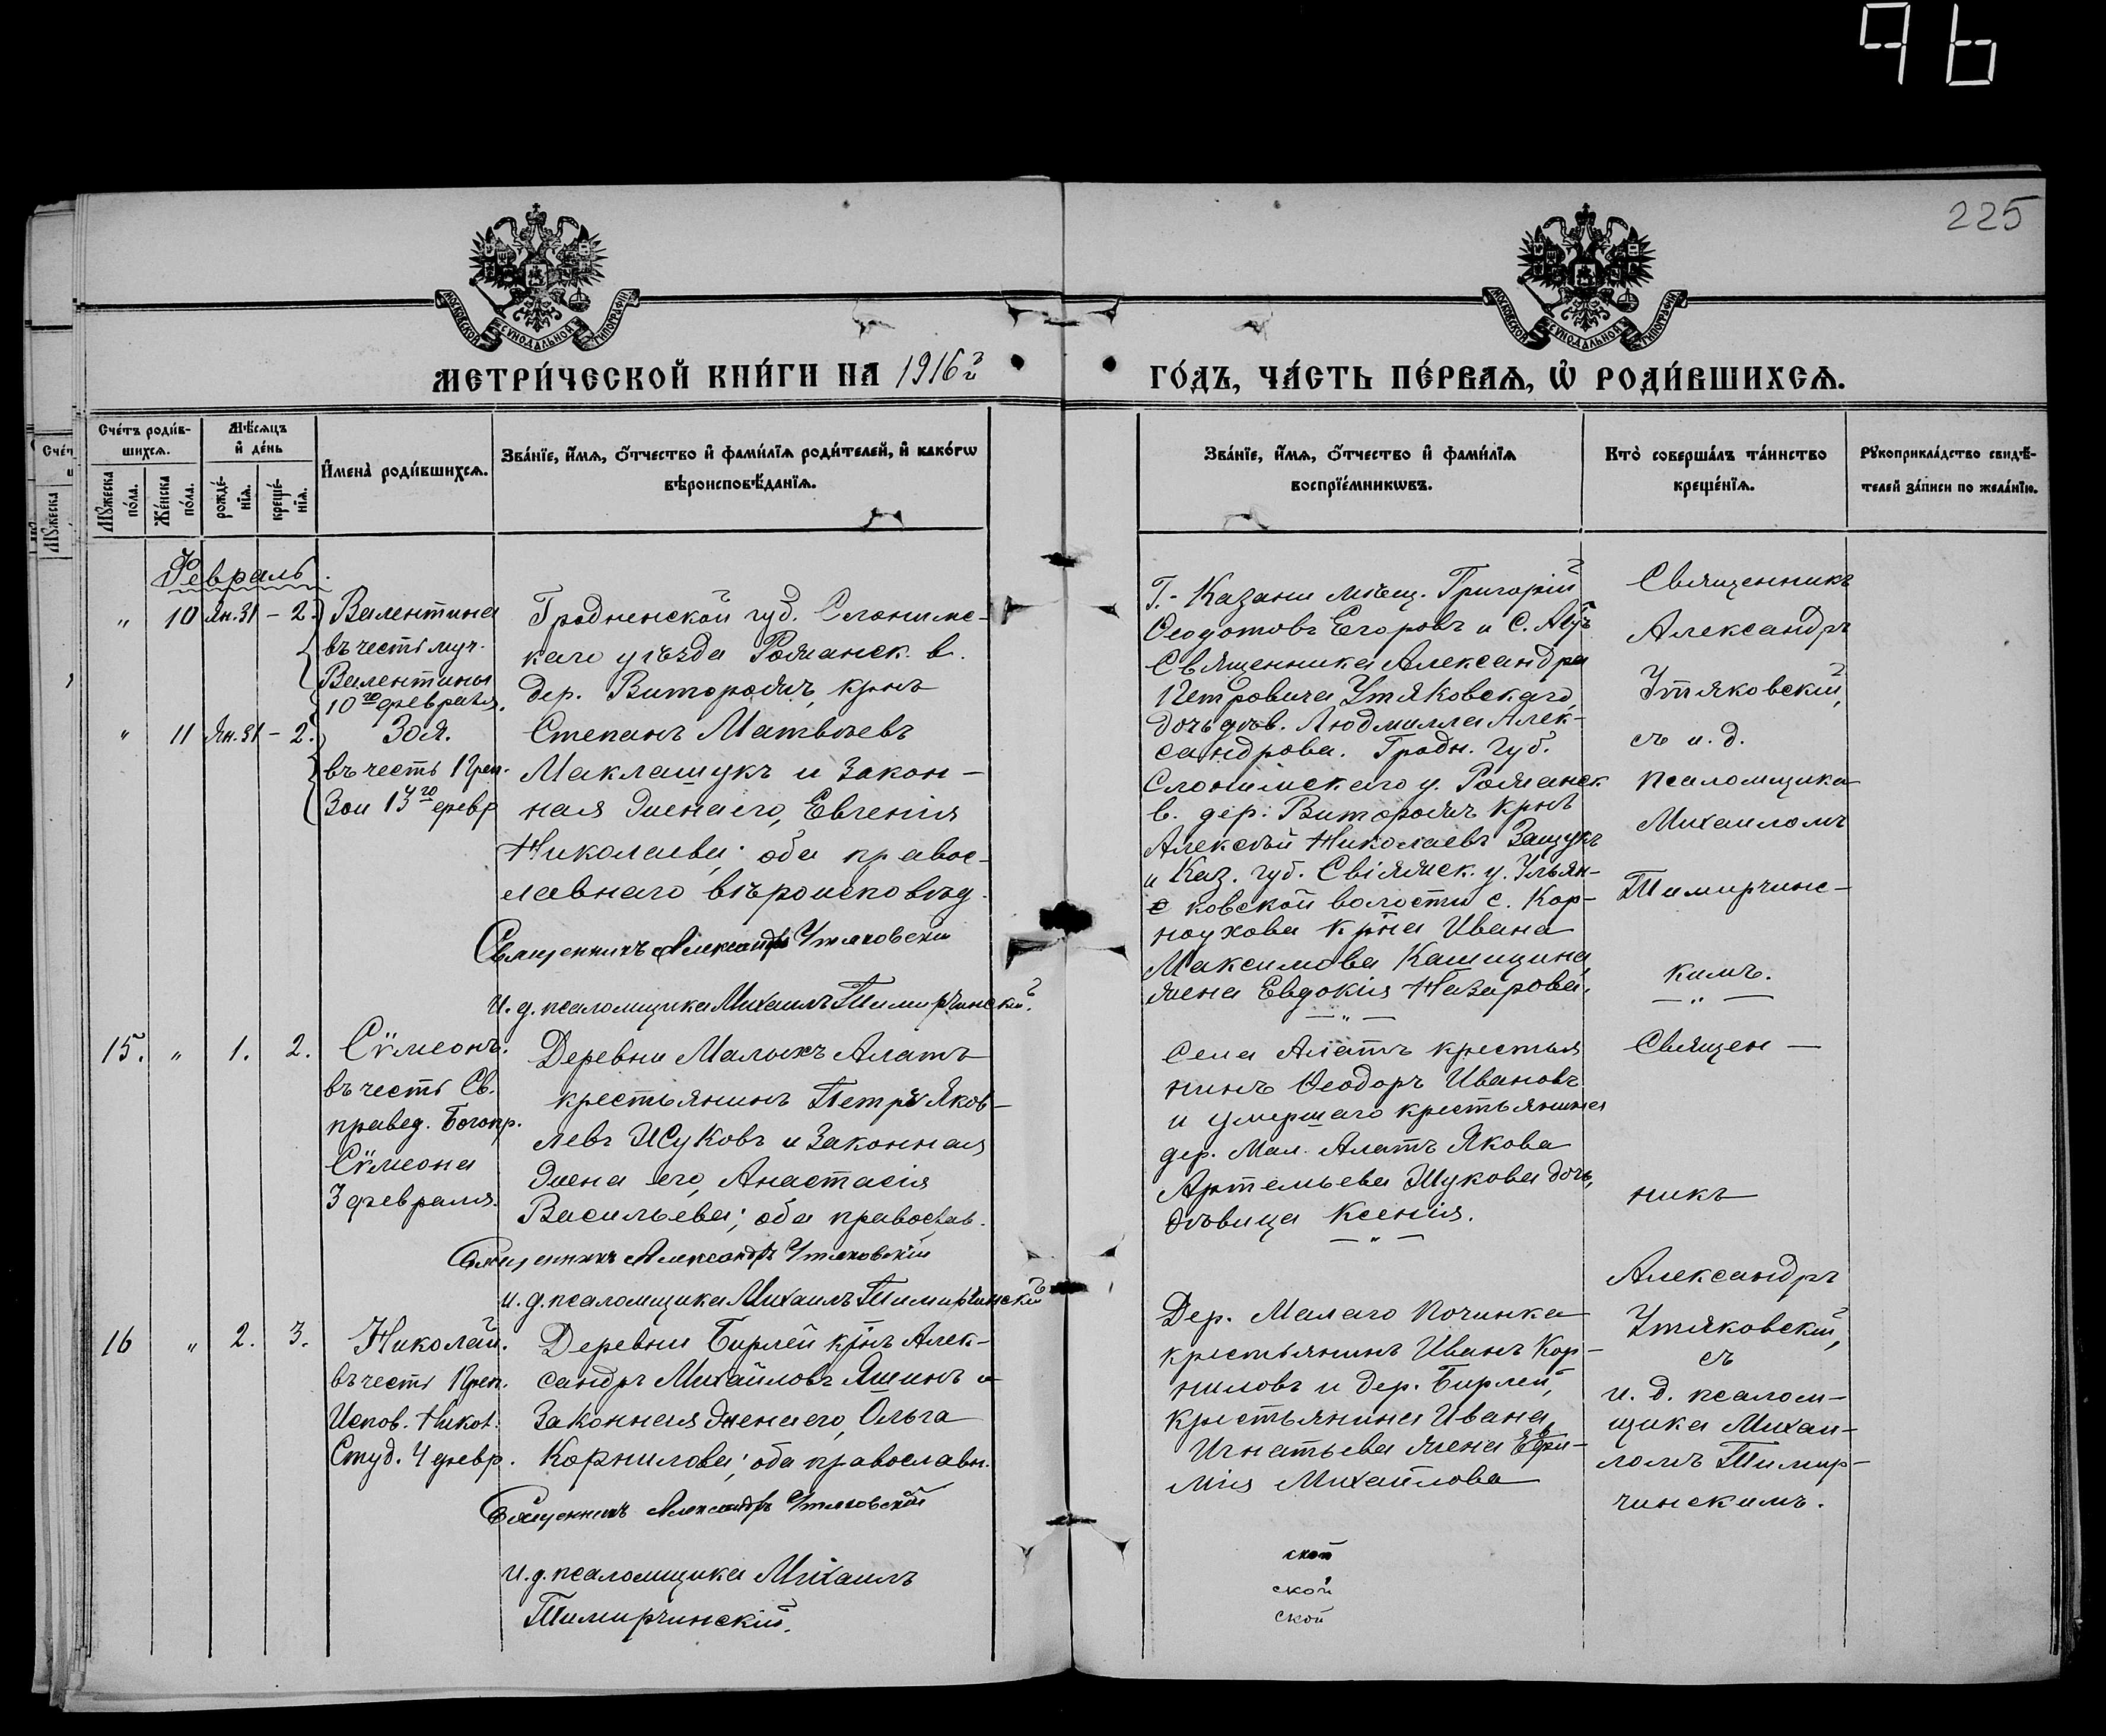 96
225
МОСКОВСКОЙ СѴНОДАЛЬНОЙ ТИПОГРАФІИ
МОСКОВСКОЙ СѴНОДАЛЬНОЙ ТИПОГРАФІИ
МЕТРИ́ЧЕСКОЙ КНИ́ГИ НА 1916й
ГО́ДЪ, ЧА́СТЬ ПЕ́РВАѦ, Ѽ РОДИ́ВШИХСѦ.
Сче́тъ роди́в-
шихсѧ.
Мѣ́сѧцъ
и҆ де́нь
И҆мена̀ роди́вшихсѧ.
Зва́нїе, и҆́мѧ, ѻ҆́тчество и҆ фами́лїѧ роди́телей, и҆ како́гѡ
вѣроисповѣ́данїѧ.
Мꙋ́жеска
по́ла.
Же́нска
по́ла.
рожде́-
нїѧ.
креще́-
нїѧ.
Зва́нїе, и҆́мѧ, ѻ҆́тчество и҆ фами́лїѧ
воспрїе́мникѡвъ.
Кто̀ соверша́лъ та́инство
креще́нїѧ.
Рꙋкоприкла́дство свидѣ́-
телей за́писи по жела́нїю.
Февраль.
" 10 Ян. 31 - 2. Валентина
въ честь муч.
Валентины
10го февраля.
" 11 Ян. 31 - 2. Зоя.
въ честь Преп.
Зои 13го февр
Гродненской губ. Слонимс-
каго уѣзда Рожанск. в.
дер. Виторожъ, крнъ
Степанъ Матвѣевъ
Маклашукъ и закон-
ная жена его, Евгенія
Николаева; оба правос-
лавнаго вѣроисповѣд.
Священникъ Александръ Утяковскій
и. д. псаломщика Михаилъ Тимирчинскій.
Г. Казани мѣщ. Григорій
Ѳеодотовъ Егоровъ и С.
Священника Александра
Петровича Утяковскаго,
дочь дѣв. Людмилла Алек-
сандрова. Гродн. губ.
Слонимскаго у. Рожанск
в. дер. Виторожъ крнъ
Алексѣй Николаевъ Защукъ
и Каз. губ. Свіяжск. у. Ульян-
ковской волости с. Кор-
ноухова крна Ивана
Максимова Кашицина,
жена Евдокія Назарова.
Священникъ
Александръ
Утяковскій,
съ и. д.
псаломщика
Михаиломъ
Тимирчинс-
кимъ.
15. " 1. 2. Сѵмеонъ.
въ честь Св.
правед. Богопр.
Сѵмеона
3 февраля.
Деревни Малыхъ Алатъ
крестьянинъ Петръ Яков-
левъ Жуковъ и законная
жена его, Анастасія
Васильева; оба православ.
Священникъ Александръ Утяковскій
и. д. псаломщика Михаилъ Тимирчинскій
Села Алатъ крестья
нинъ Ѳеодоръ Ивановъ
и умершаго крестьянина
дер. Мал. Алатъ Якова
Артемьева Жукова дочь,
дѣвица Ксенія.
Священ-
никъ
Александръ
Утяковскій,
съ
и. д. псалом-
щика Михаи-
ломъ Тимир-
чинскимъ.
16 " 2. 3. Николай.
въ честь Преп.
Испов. Никол.
Студ. 4 февр.
Деревни Бирлей крнъ Алек-
сандръ Михайловъ Яшинъ и
законная жена его, Ольга
Корнилова; оба православн.
Священникъ Александръ Утяковскій
и. д. псаломщика Михаилъ
Тимирчинскій.
Дер. Малаго Починка
крестьянинъ Иванъ Кор-
ниловъ и дер. Бирлей,
крестьянина Ивана
Игнатьева жена Ефи-
мія Михайлова
ской
ской
ской